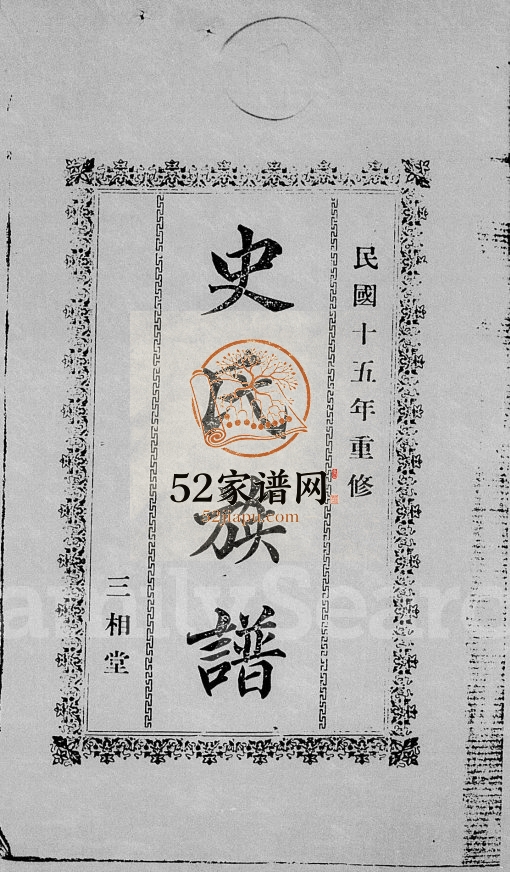 民國十五年重修
史氏族譜
三相堂
52家谱网
52jiapu.com
FamilySearch